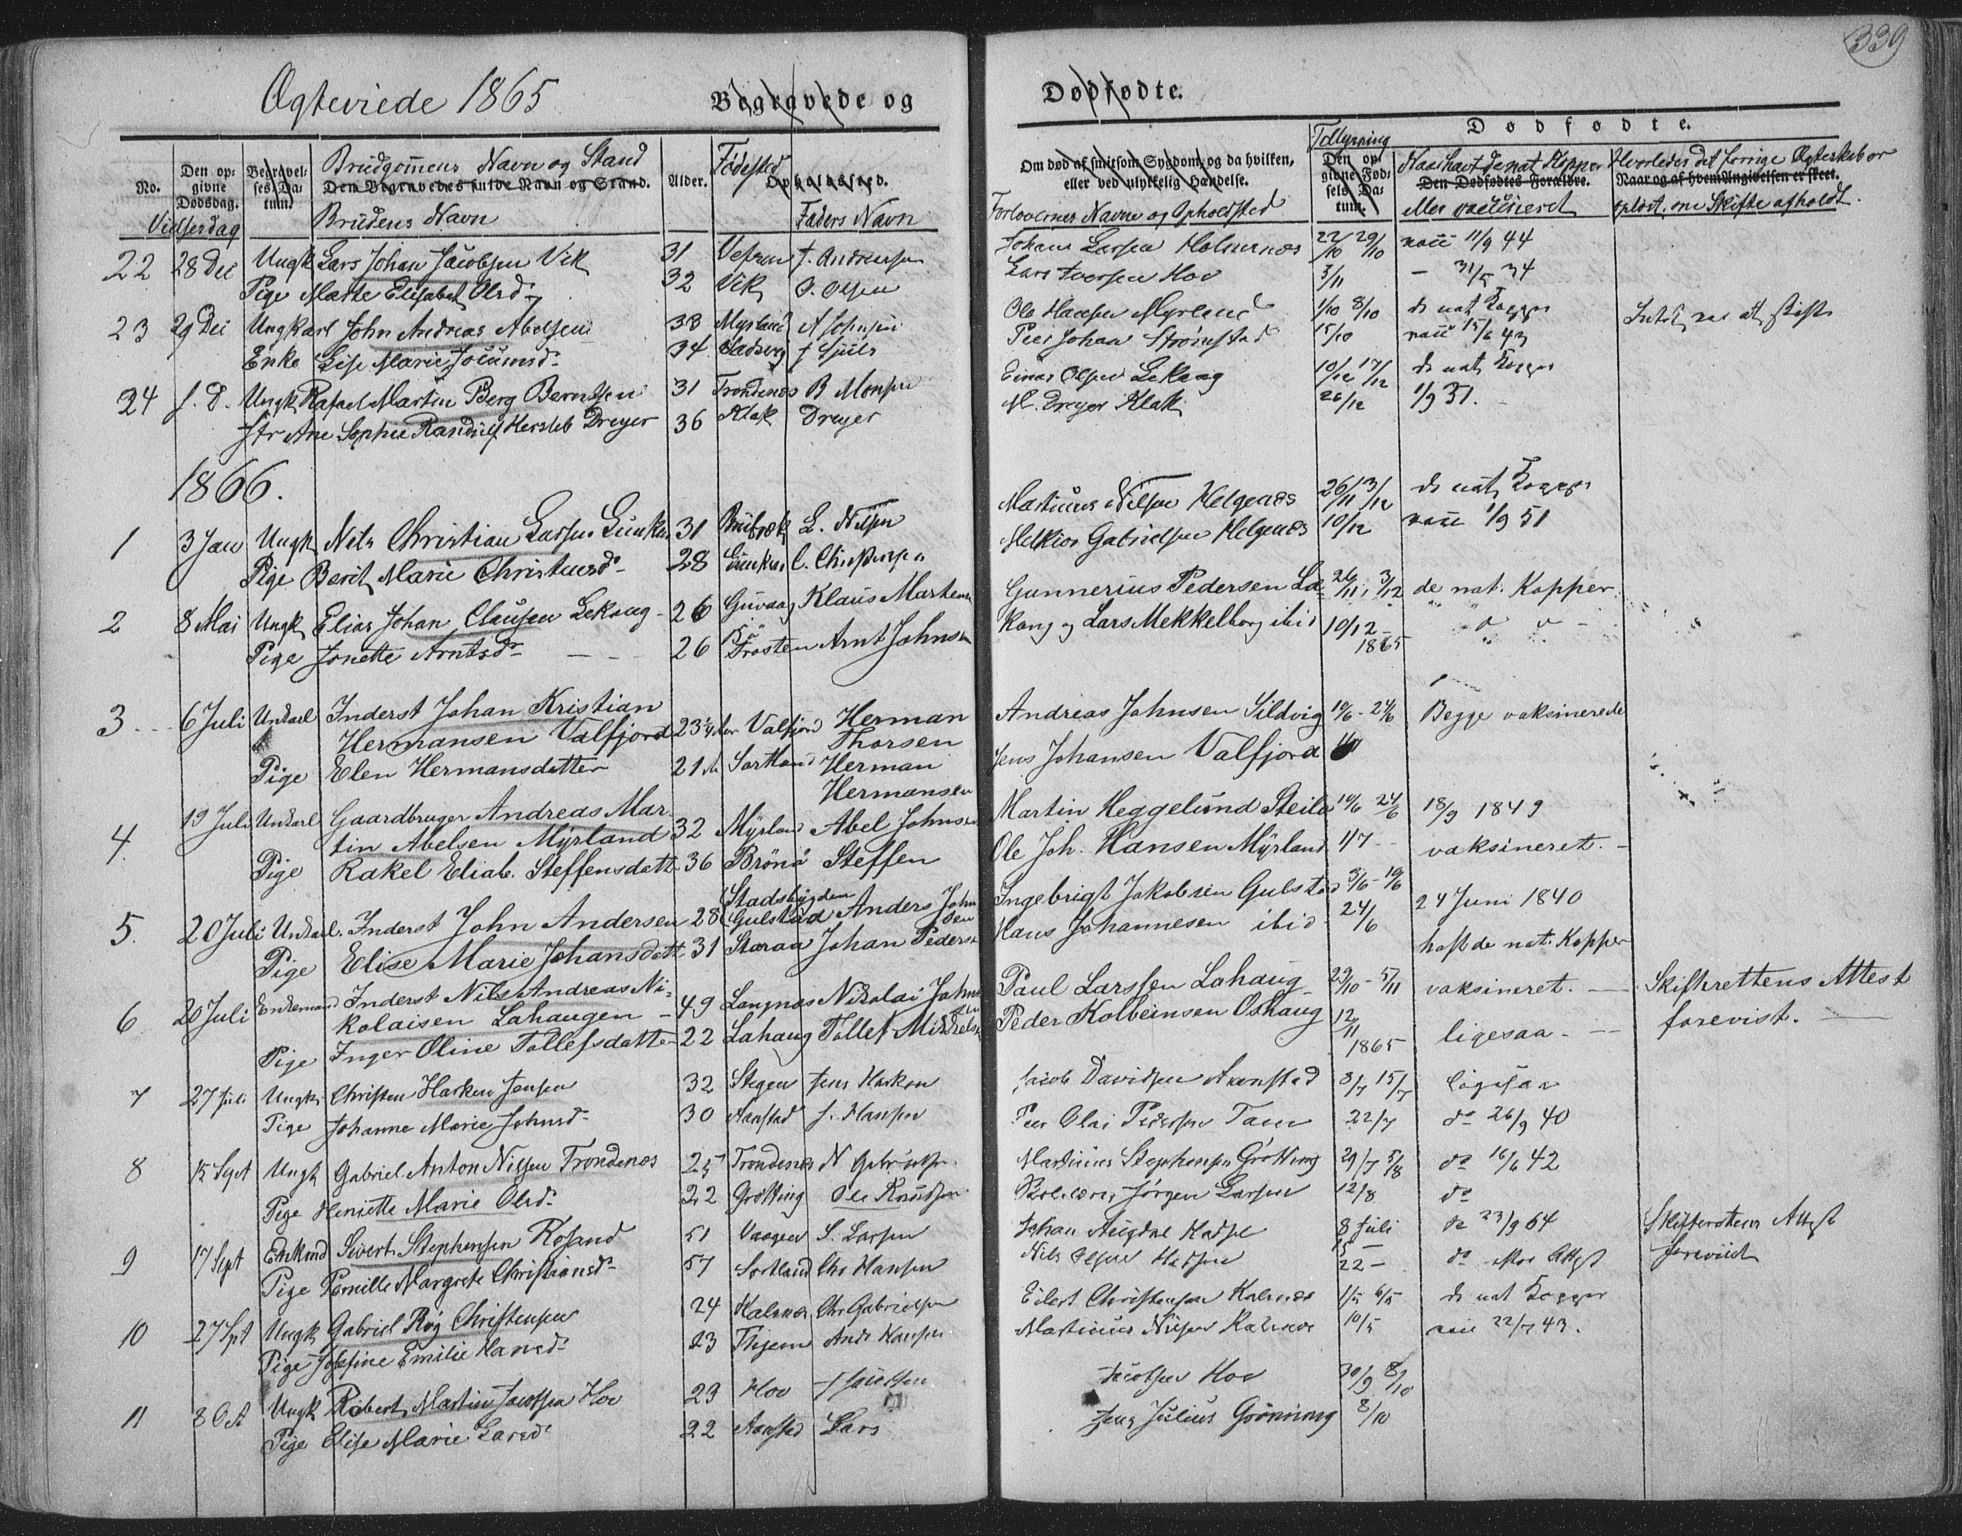 339
Ægteviede 1865 Begravede og Dødfødte.
Dødfødte.
No. Den opgivne Dødsdag. Vidserdag
Begravelses Datum.
Brudgommens Navn og Stand
Den Begravedes fulde Navn og Stand.
Brudens Navn
Alder.
Fødested
Opholdssted.
Faders Navn
Om død af smitsom Sygdom, og da hvilken,
eller ved ulykkelig Hændelse.
Forlovernes Navne og Opholdsted
Tillysning
Den opgivne Fødsels Datum.
Naar havt de nat Kopper
Den Dødfødtes Forældre.
eller vaccineret
Hvorledes det forrige Ægteskab er
Naar og af hvem Angivelsen er skeet.
opløst, om Skifte afholdt.
22 28 Dec Ungk Lars Johan Jacobsen Vik 31 J. Andreasen Johan Larsen Holmernæs 22/10 29/10 vacc 11/9 44
Pige Marte Elisabet Olsd. 32 Vik O. Olsen Lars Iversen Hov 3/11 – 31/5 34
23 29 Dec Ungkarl John Andreas Abelsen 33 Myrland A Johnsen Ole Hansen Myrland 1/10 8/10 de nat Kopper
Enke Lise Marie Jocumsd. 34 Peer Johan Strømstad 15/10 vacc 15/6 43
24 s. D. Ungk Rafael Martin Berg Berntsen 31 Trondenes B Monsen Einar Olsen Lekang 10/12 17/12 de nat Kopper
Jfr Ane Sophie Randulf Hersleb Dreyer 36 Klak Dreyer M. Dreyer Klak 26/12 1/9 31.
1866.
1 3 Jan Ungk Nils Christian Larsen 31 L. Nilsen Martinus Nilsen Helgenæs 26/11 3/12 de nat Kopper
Pige Berit Marie Christensd. 28 C. Christensen Melkior Gabrielsen Helgenæs 10/12 vacc 1/9 51
2 8 Mai Ungk Elias Johan Clausen Lekang 26 Guvaag Klaus Martens Gunnerius Pedersen Le- 26/11, 3/12 de nat. Kopper
Pige Jonette Arntsdr. 26 Trosten Arnt Johnsen kang og Lars Mekkelborg ibid 10/12 1865
3 6 Juli Unkarl Inderst Johan Kristian 23 Valfjord Herman Andreas Johnsen Sildvig 10/6 - 24/6 Begge vaksinerede
Hermansen Valfjord Thorsen
Pige Elen Hermansdatter 21 Sortland Herman Jens Johansen Valfjord
Hermansen
4. 19 Juli Unkarl Gaardbruger Andreas Mar- 32 Myrland Abel Johnsen Martin Heggelund Steilo 10/6 24/6 18/9 1849
tin Abelsen Myrland
Pige Rakel Eliab. Steffensdatt. 36 Brönö Steffen Ole Joh. Hansen Myrland vaksineret.
5. 20 Juli Unkarl. Inderst John Andersen 28 Stadsbygden Gulstad Anders Johnsen Ingebrigt Jakobsen Gulstad 3/6 - 10/6 24 Juni 1840
Pige Elise Marie Johansdatt. 31 Johan Pedersen Hans Johannesen ibid 24/6 haft de nat. Kopper
6 20 Juli Enkemand Inderst Nils Andreas Ni- 49 Langnæs Nikolai Johnsen Paul Larsen Lahaug 29/10 - 5/11 vaksineret. Skifterettens Attest
kolaisen Lahaugen forevist.
Pige Inger Oline Tollefsdatte 22 Lahaug Tollef Mikkelsen Peder Kolbeinsen Oshaug 12/11 1865 ligesaa
7 27 Juli Ungk. Christen Harken Jensen 32 Stegen Jens Harkon Jacob Davidsen Aanstad 8/7 15/7 ligesaa
Pige Johanne Marie Johnsd. 30 Aanstad J. Hansen Peer Olai Pedersen 22/7 do 26/9 40
8 15 Sept Ungk Gabriel Anton Nilsen Trondenæs 25 Trondenæs N Gabrielsen Martinus Stephensen Grøtting 29/7 5/8 do 16/6 42
Pige Henriette Marie Olsd. 22 Grøtting Ole Knudsen Jørgen Larsen 12/8 do
9 17 Sept Enkmd Sivert Stephensen Rosand 51 Vaagen S. Larsen Johan Hadsel 8 Juli do 23/9 64 Skifterettens Attest
Pige Pernille Margrete Christiansd. 57 Sortland Chr Hansen Nils Olsen 15 – 22 – do Attest forevist
10 27 Spt Ungk Gabriel Røg Christensen 24 Kalsnæs Chr Gabrielsen Eilert Christensen Kalsnæs 1/5 6/5 de nat Kopper
Pige Josefine Emilie Hansd. 23 And. Hansen Martinus Nilsen Kalsnæs 10/5 vacc 22/7 43.
11 8 Oct Ungk Robert Martin Jacobsen Hov 23 Hov J Jacobsen Jacobsen Hov 30/9 8/10
Pige Elise Marie Larsd. 22 Aanstad Lars Jens Julius Grønning 8/10